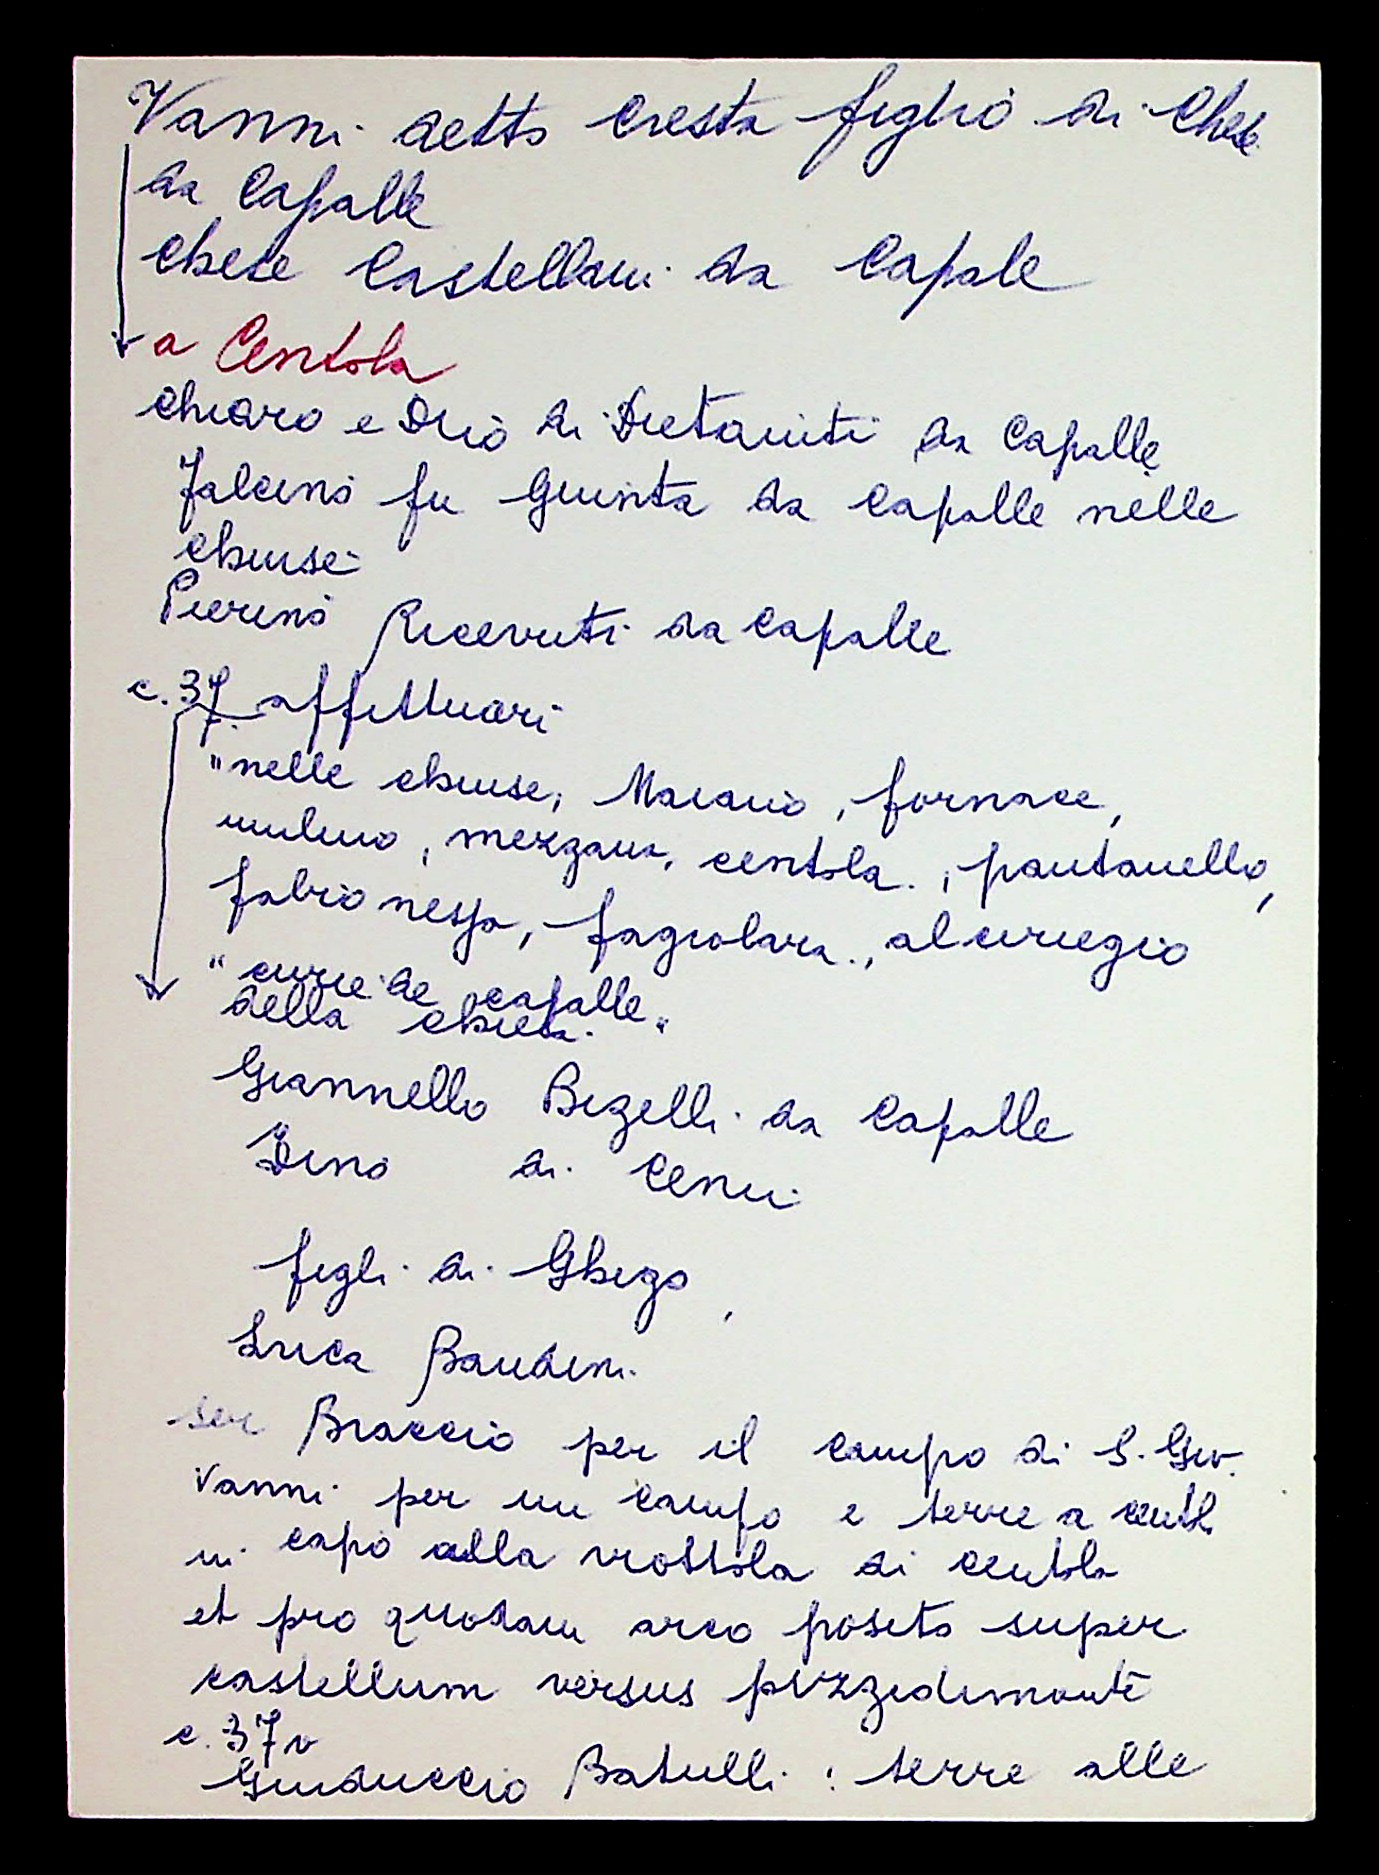 Vanni detto Cresta figlio di Chele
da Capalle
Chele Castellani da Capale
a Centola
Chiaro e Duo di Dietaiuti da Capalle
Falcino fu Giunta da Capalle nelle
chiuse
Pierino Ricevuti da Capalle
c. 37 affittuari
"nelle chiuse, Maiano, fornace,
mulino, mezzana, centola, pantanello,
fabrionessa, fagiolara, al ciriegio
"curie de capalle"
della chiesa
Giannello Bizelli da Capalle
Dino di Cenni
figli di Ghigo,
Luca Bandini
ser Braccio per il campo di S. Giov.
Vanni per un campo e terre a centl.
in capo alla viottola di centola
et pro quodam arco posito super
castellum versus pizzidimonte
c. 37v
Guiduccio Batulli : terre alle